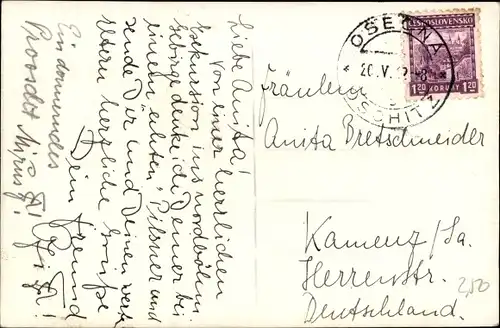 Liebe Anita!
Von einer herrlichen
Exkursion ins nordböhm.
Gebirge denke ich Deiner bei
einem „echten“ Pilsner und
sende Dir und Deinen werten
Eltern herzliche Grüße
Dein Freund
Ein donnerndes
Prosit
OSEČNÁ
20.V.
OSCHITZ
ČESKOSLOVENSKO
1.20 KORUNY 1.20
Fräulein
Anita Bretschneider
Kamenz/Sa.
Herrenstr.
Deutschland.
2,50